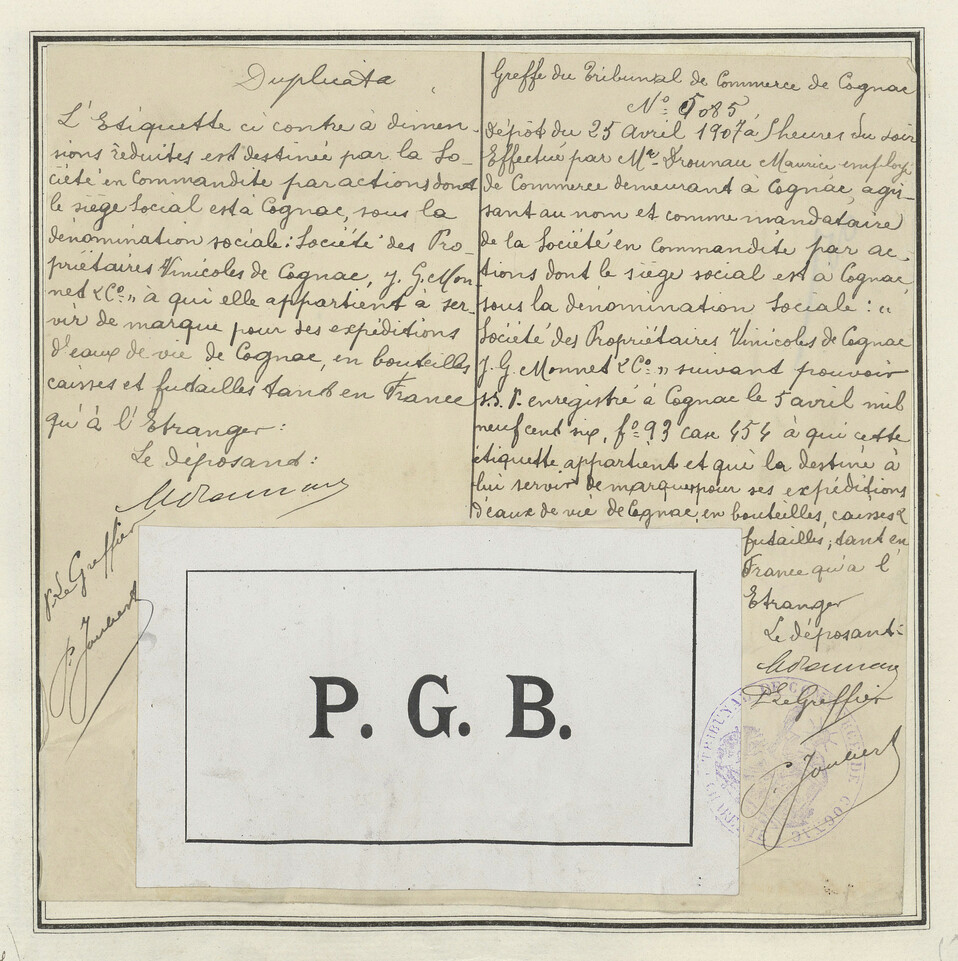 Duplicata
L'Etiquette ci contre à dimen-
sions réduites est destinée par la So-
ciété en Commandite par actions dont
le siège Social est à Cognac, sous la
dénomination sociale: Société des Pro-
priétaires Vinicoles de Cognac, J. G. Mon-
net & Co. „ à qui elle appartient à ser-
vir de marque pour ses expéditions
d'eaux de vie de Cognac, en bouteilles
caisses et futailles tant en France
qu'à l'Etranger:
Le déposant:
P. Le Greffier
P. Joubert
Greffe du Tribunal de Commerce de Cognac
No. 5085
Dépôt du 25 avril 1907 à 5 heures du soir
Effectué par Mr. Drounau Maurice employé
de Commerce demeurant à Cognac, agis-
sant au nom et comme mandataire
de la Société en Commandite par ac-
tions dont le siège social est à Cognac,
sous la dénomination Sociale: "
Société des Propriétaires Vinicoles de Cognac
J. G. Monnet & Co. „ suivant pouvoir
s.s. p. enregistré à Cognac le 5 avril mil
neuf cent six, fo. 93 case 454 à qui cette
étiquette appartient et qui la destine à
lui servir de marque pour ses expéditions
d'eaux de vie de Cognac, en bouteilles, caisses &
futailles, tant en
France qu'à l'
Etranger
Le déposant:
P. Le Greffier
P. Joubert
TRIBUNAL DE COMMERCE DE COGNAC
CHARENTE
P. G. B.